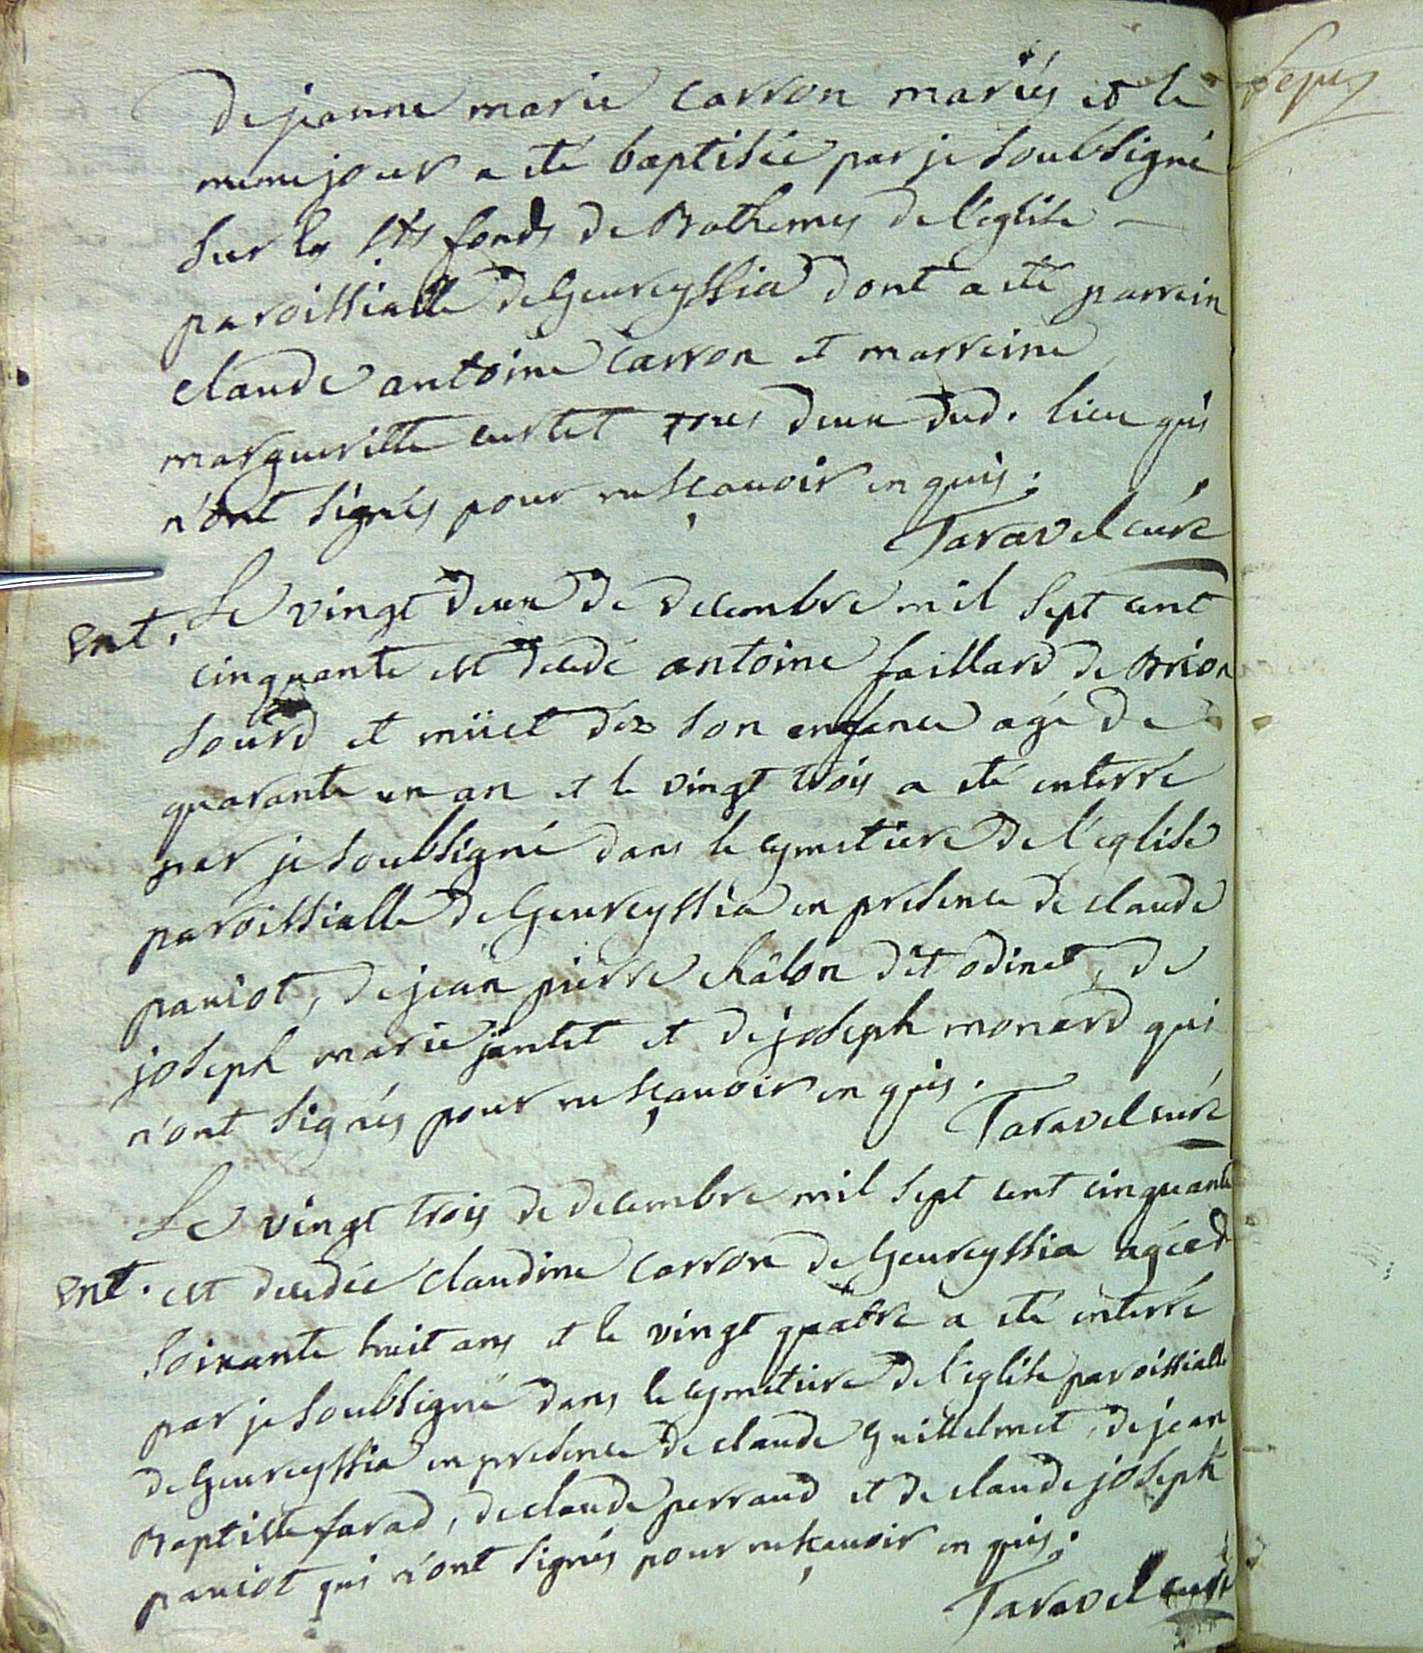 de jeanne marie carron mariés et le
meme jour a eté baptisée par je soubsigné
sur les sts fonds de Bathemes de l'eglise
paroissialle de Geureyssia dont a eté parrein
claude antoine carron et marreine
margueritte curtet tous deux dud. lieu qui
n'ont signés pour ne sçauoir enquis.
Taravel curé
ent. Le vingt deux de decembre mil sept cent
cinquante est decedé antoine faillard de Brion
sourd et müet déz son enfance agé de
quarante un an et le vingt trois a eté enterré
par je soubsigné dans le cymetiere de l'eglise
paroissialle de Geureyssia en presence de claude
paniot, de jean pierre châlon dit odinet, de
joseph marie jantet et de joseph monard qui
n'ont signés pour ne sçauoir enquis.
Taravel curé
Le vingt trois de decembre mil sept cent cinquante
ent. est decedée claudine carron de Geureyssia agée de
soixante huit ans et le vingt quatre a eté enterré
par je soubsigné dans le cymetiere de l'eglise paroissialle
de Geureyssia en presence de claude Guillelmet, de jean
Baptiste farad, de claude perraud et de claude joseph
paniot qui n'ont signés pour ne sçauoir enquis.
Taravel curé